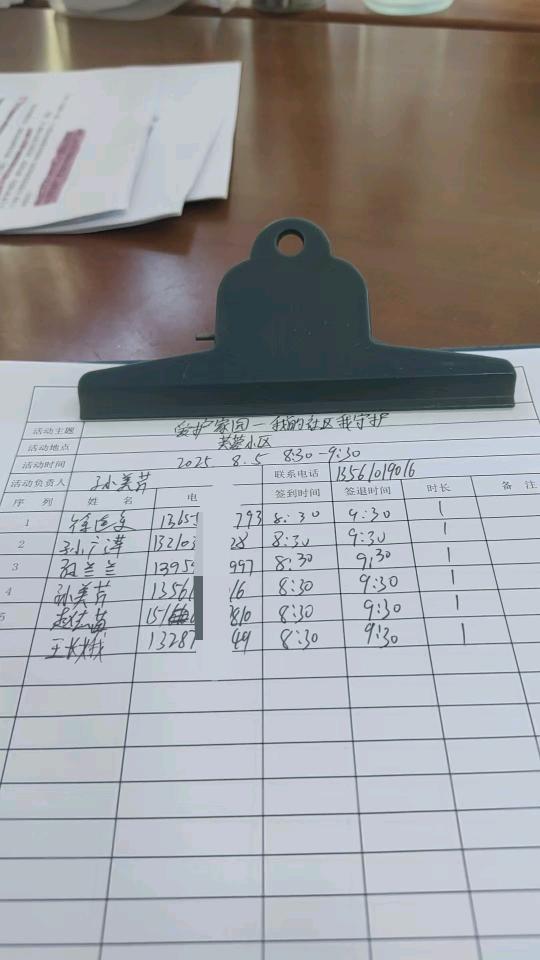 活动主题 爱护家园—我的社区我守护
活动地点 芙蓉小区
活动时间 2025.8.5 8:30-9:30
活动负责人 孙美芹 联系电话 13561019016
序列 姓名 电 签到时间 签退时间 时长 备注
1 793 8:30 9:30 1
2 孙广萍 28 8:30 9:30 1
3 兰兰 1395 997 8:30 9:30 1
4 孙美芹 13561 16 8:30 9:30 1
5 810 8:30 9:30 1
王 13287 49 8:30 9:30 1